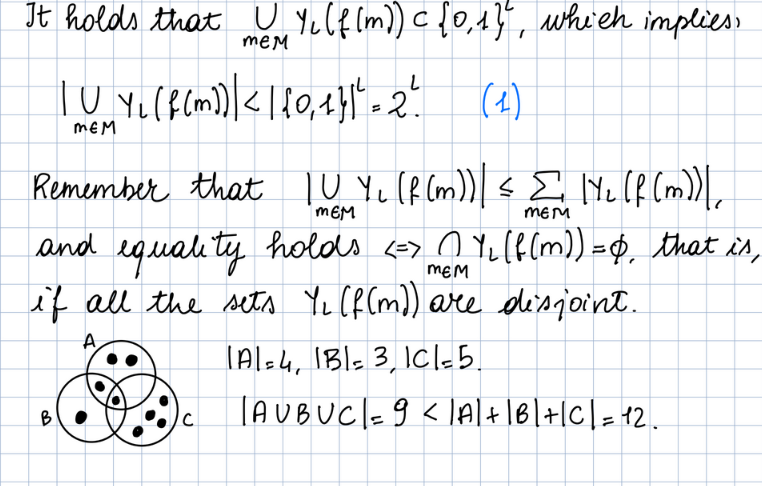 It holds that ⋃_{m∈M} Y_L(f(m)) ⊂ {0,1}^L, which implies,
|⋃_{m∈M} Y_L(f(m))| < |{0,1}|^L = 2^L. (1)
Remember that |⋃_{m∈M} Y_L(f(m))| ≤ ∑_{m∈M} |Y_L(f(m))|,
and equality holds <=> ⋂_{m∈M} Y_L(f(m)) = ϕ, that is,
if all the sets Y_L(f(m)) are disjoint.
A
B
C
|A|=4, |B|=3, |C|=5.
|A∪B∪C|=9 < |A|+|B|+|C|=12.